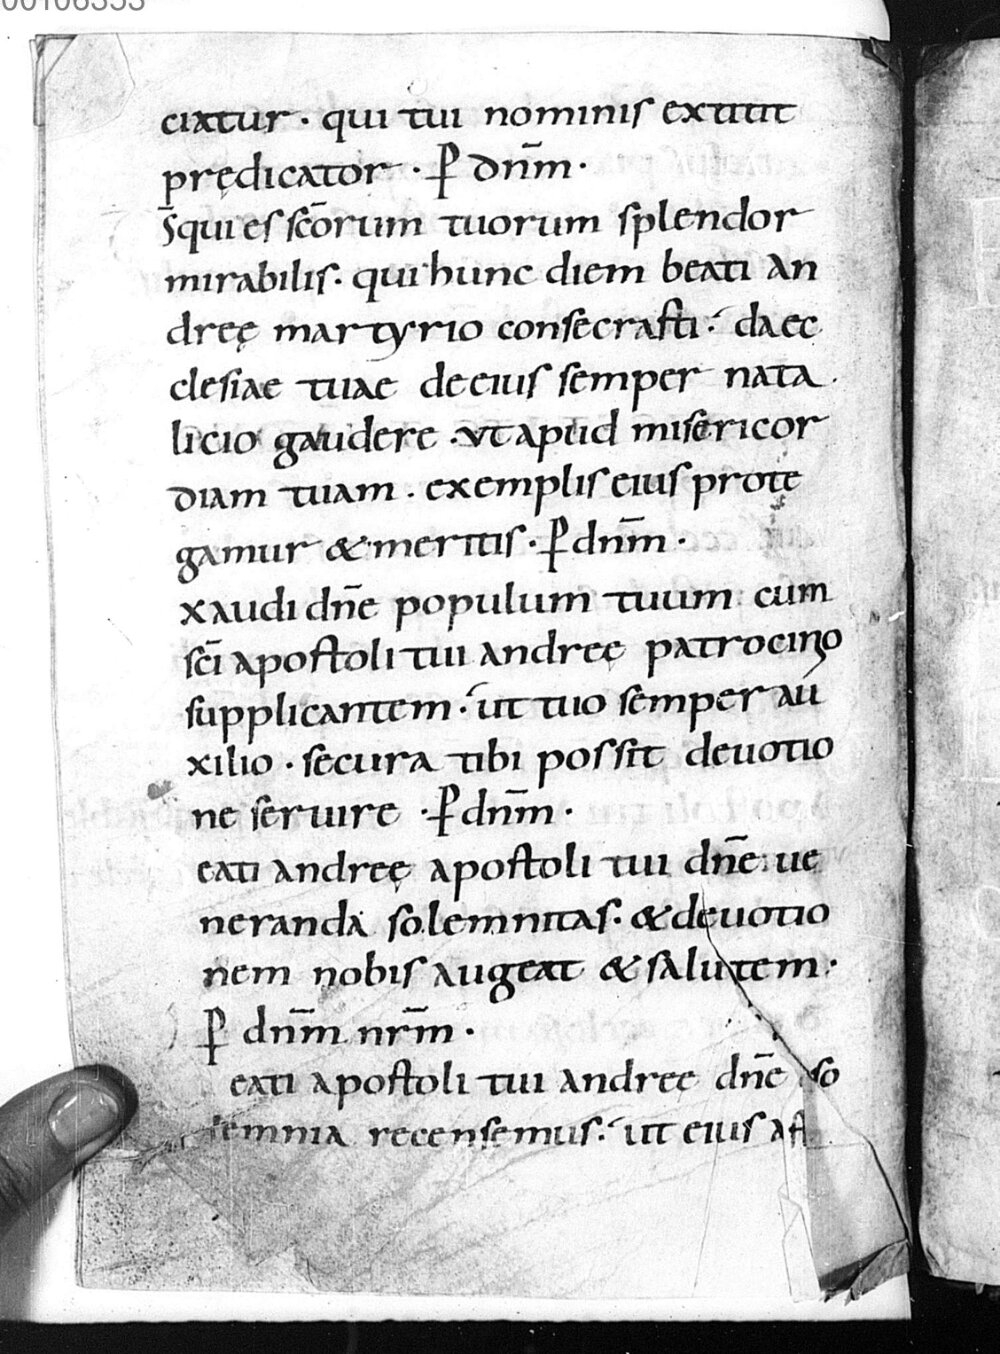 00106353
ciatur · qui tui nominis extitit
prędicator · P dn̄m ·
S̄qui es scōrum tuorum splendor
mirabilis · qui hunc diem beati an
dreę martyrio consecrasti · da ec
clesiae tuae de eius semper nata
licio gaudere · ut apud misericor
diam tuam · exemplis eius prote
gamur & meritis · P dn̄m ·
xaudi dn̄e populum tuum cum
sc̄i apostoli tui andreę patrocinio
supplicantem · ut tuo semper au
xilio · secura tibi possit deuotio
ne seruire · P dn̄m ·
eati andreę apostoli tui dn̄e ue
neranda solemnitas · & deuotio
nem nobis augeat & salutem ·
P dn̄m nr̄m ·
eati apostoli tui andree dn̄e so
lemnia recensemus · ut eius